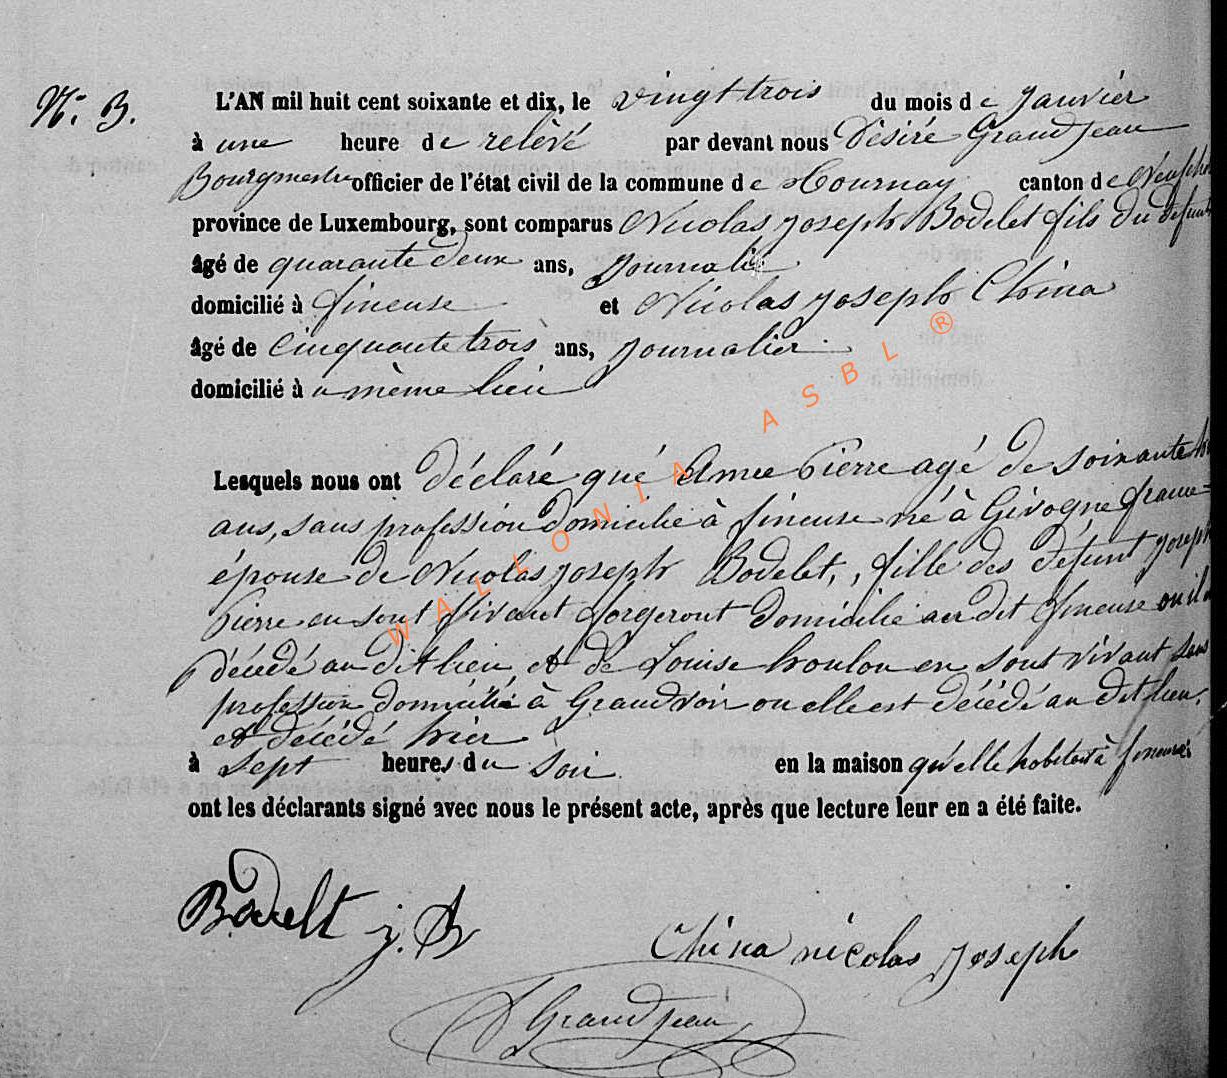 N° 3.
L'AN mil huit cent soixante et dix, le vingt trois du mois de Janvier
à une heure de relevé par devant nous Désiré Grandjean
Bourgmestre officier de l'état civil de la commune de Tournay canton de Neufch
province de Luxembourg, sont comparus Nicolas Joseph Bodelet fils du défunt
âgé de quarante deux ans, Journalier
domicilié à fineuse et Nicolas Joseph China
âgé de Cinquante trois ans, Journalier
domicilié à u même lieu
Lesquels nous ont déclaré qué Pierre agé de soixante
ans, sans profession domicilié à fineuse né à Givogne france
épouse de Nicolas Joseph Bodelet, fille des défunt Joseph
Pierre en sont vivant forgeront domicilié au dit fineuse ou il
décédé au dit lieu et de Louise houlon en sont vivant sans
profession domicilié à Grandvoir ou elle est décédé au dit lieu,
et décédé hier
à sept heures du soir en la maison qu'elle habitait à fineuse
ont les déclarants signé avec nous le présent acte, après que lecture leur en a été faite.
Bodelt j. China nicolas Joseph
Grandjean
WALLONIA ASBL ®